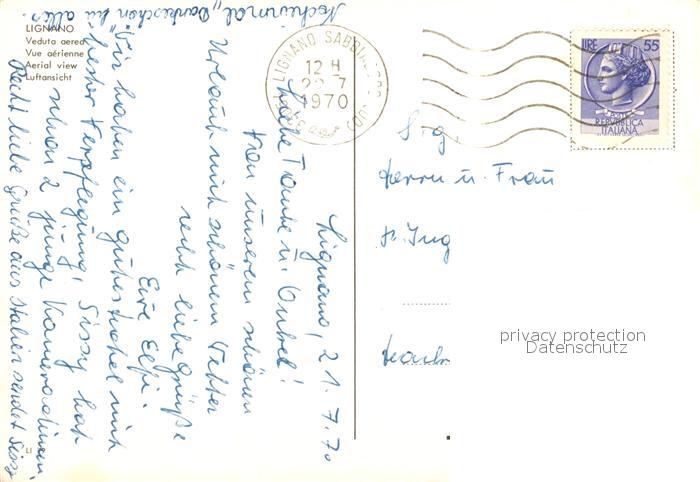 LIGNANO
Veduta aerea
Vue aérienne
Aerial view
Luftansicht
Lignano, 21.7.70
Liebe Tante u. Onkel!
Von unserem schönen
Urlaub mit schönem Wetter
recht liebe Grüße
Eure Elfi.
Wir haben ein gutes Hotel mit
bester Verpflegung! Sissy hat
schon 2 junge Kameradinnen.
Recht liebe Grüße aus Italien sendet Sissy
Nocheinmal "Dankeschön" für alles.
LIGNANO SABBIADORO (UD)
12 H
7
1970
LIRE 55
REPUBBLICA
ITALIANA
Herrn u. Frau
Ing
privacy protection
Datenschutz
LI